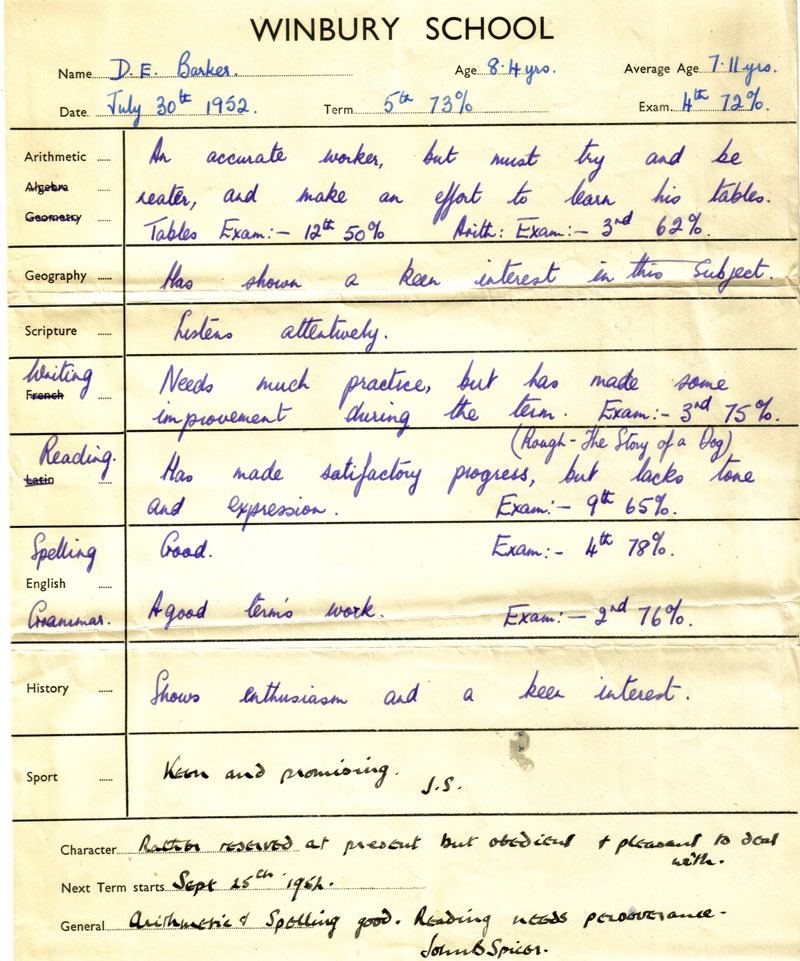 WINBURY SCHOOL
Name D. E. Barker. Age 8·4 yrs. Average Age 7·11 yrs.
Date July 30th 1952. Term 5th 73% Exam. 4th 72%.
Arithmetic An accurate worker, but must try and be
Algebra neater, and make an effort to learn his tables.
Geometry Tables Exam:- 12th 50% Arith: Exam:- 3rd 62%.
Geography Has shown a keen interest in this Subject.
Scripture Listens attentively.
Writing Needs much practice, but has made some
French improvement during the term. Exam:- 3rd 75%.
(Rough - The Story of a Dog)
Reading. Has made satifactory progress, but lacks tone
Latin and expression. Exam:- 9th 65%.
Spelling Good. Exam:- 4th 78%.
English
Grammar. A good term's work. Exam:- 2nd 76%.
History Shows enthusiasm and a keen interest.
Sport Keen and promising.
J.S.
Character Rather reserved at present but obedient + pleasant to deal
with.
Next Term starts Sept 25th 1952.
General Arithmetic & Spelling good. Reading needs perseverance.
John B Spicer.